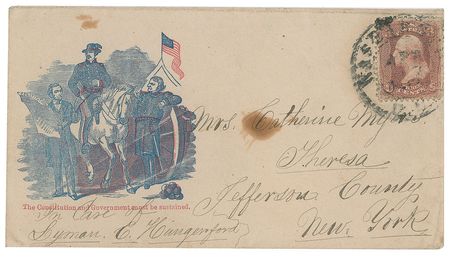 The Constitution and Government must be sustained.
Mrs. Catherine Myers
Theresa
Jefferson County
New York
In Care of
Lyman. E. Hungerford